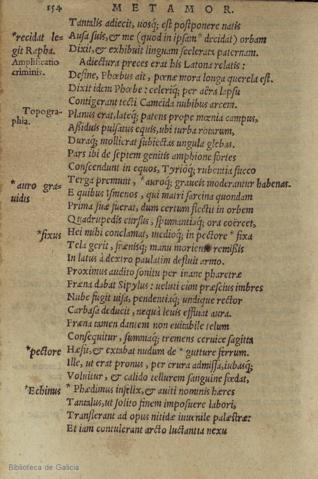 154 METAMOR.
Tantalis adiecit, uosq; est postponere natis
*recidat le-
git Rapha.
Ausa suis, & me (quod in ipsam * decidat) orbam
Dixit, & exhibuit linguam scelerata paternam.
Amplificatio
criminis.
Adiectura preces erat his Latona relatis:
Desine, Phœbus ait, pœnæ mora longa querela est.
Dixit idem Phœbe: celeriq; per aëra lapsu
Contigerant tecti Cadmeida nubibus arcem.
Topogra-
phia.
Planus erat, lateq; patens prope mœnia campus,
Assiduis pulsatus equis, ubi turba rotarum,
Duraq; mollierat subiectas ungula glebas.
Pars ibi de septem genitis amphione fortes
Conscendunt in equos, Tyrioq; rubentia succo
*auro gra-
uidis
Terga premunt, * auroq; graueis moderantur habenas.
E quibus Ismenos, qui matri sarcina quondam
Prima suæ fuerat, dum certum flectit in orbem
Quadrupedis cursus, spumantiaq; ora coërcet,
*fixus
Hei mihi conclamat, medioq; in pectore * fixa
Tela gerit, frænisq; manu moriente remissis
In latus à dextro paulatim defluit armo.
Proximus audito sonitu per inane pharetræ
Fræna dabat Sipylus: ueluti cum præscius imbres
Nube fugit uisa, pendentiaq; undique rector
Carbasa deducit, nequà leuis effluat aura.
Fræna tamen dantem non euitabile telum
Consequitur, summaq; tremens ceruice sagitta
*pectore
Hæsit, & extabat nudum de * gutture ferrum.
Ille, ut erat pronus, per crura admissa, iubasq;
Voluitur, & calido tellurem sanguine fœdat,
*Echinus
* Phædimus infelix, & auiti nominis hæres
Tantalus, ut solito finem imposuere labori,
Transierant ad opus nitidæ iuuenile palæstræ:
Et iam contulerant arcto luctantia nexu
Biblioteca de Galicia